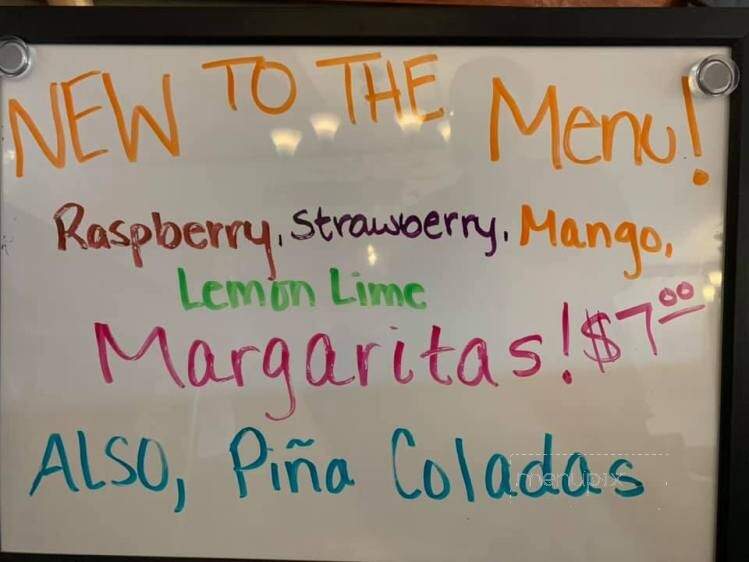 NEW TO THE Menu!
Raspberry, Strawberry, Mango,
Lemon Lime
Margaritas! $7.00
ALSO, Piña Coladas
menupix